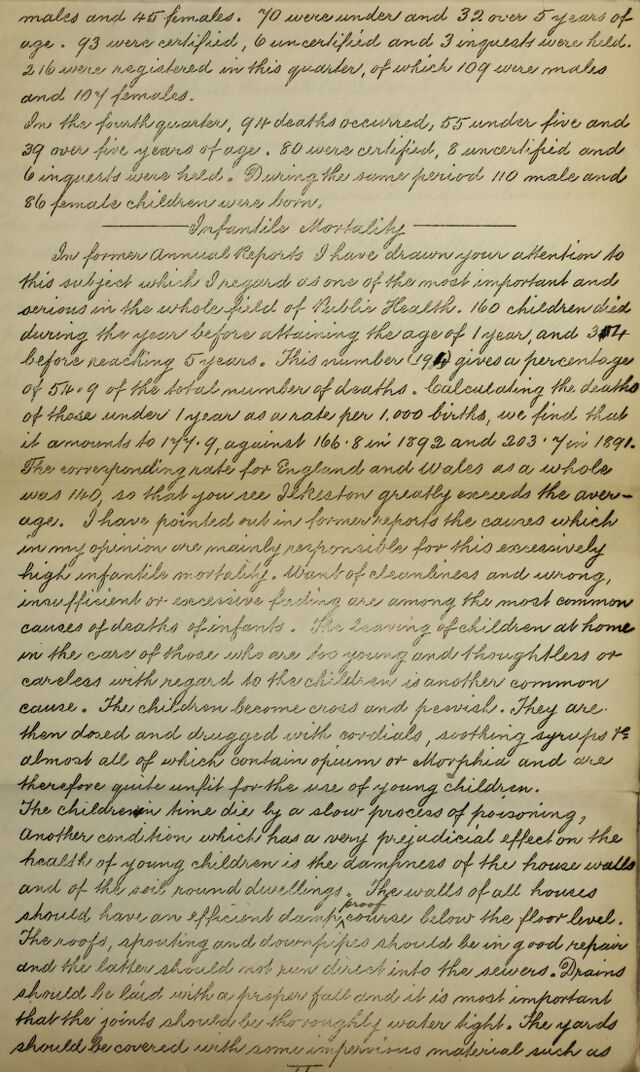 males and 45 females. 70 were under and 32 over 5 years of
age. 93 were certified, 6 uncertified and 3 inquests were held.
216 were registered in this quarter, of which 109 were males
and 107 females.
In the fourth quarter, 94 deaths occurred, 55 under five and
39 over five years of age. 80 were certified, 8 uncertified and
6 inquests were held. During the same period 110 male and
86 female children were born.
Infantile Mortality
In former Annual Reports I have drawn your attention to
this subject which I regard as one of the most important and
serious in the whole field of Public Health. 160 children died
during the year before attaining the age of 1 year, and
before reaching 5 years. This number gives a percentage
of 54.9 of the total number of deaths. Calculating the deaths
of those under 1 year as a rate per 1,000 births, we find that
it amounts to 177.9, against 166.8 in 1892 and 203.7 in 1891.
The corresponding rate for England and Wales as a whole
was 140, so that you see Ilkeston greatly exceeds the aver-
age. I have pointed out in former reports the causes which
in my opinion are mainly responsible for this excessively
high infantile mortality. Want of cleanliness and wrong,
insufficient or excessive feeding are among the most common
causes of deaths of infants. The leaving of children at home
in the care of those who are too young and thoughtless or
careless with regard to the children is another common
cause. The children become cross and peevish. They are
then dosed and drugged with cordials, soothing syrups &c
almost all of which contain opium or Morphia and are
therefore quite unfit for the use of young children.
The children in time die by a slow process of poisoning,
Another condition which has a very prejudicial effect on the
health of young children is the dampness of the house walls
and of the soil round dwellings. The walls of all houses
should have an efficient damp proof course below the floor level.
The roofs, spouting and downpipes should be in good repair
and the latter should not run direct into the sewers. Drains
should be laid with a proper fall and it is most important
that the joints should be thoroughly water tight. The yards
should be covered with some impervious material such as